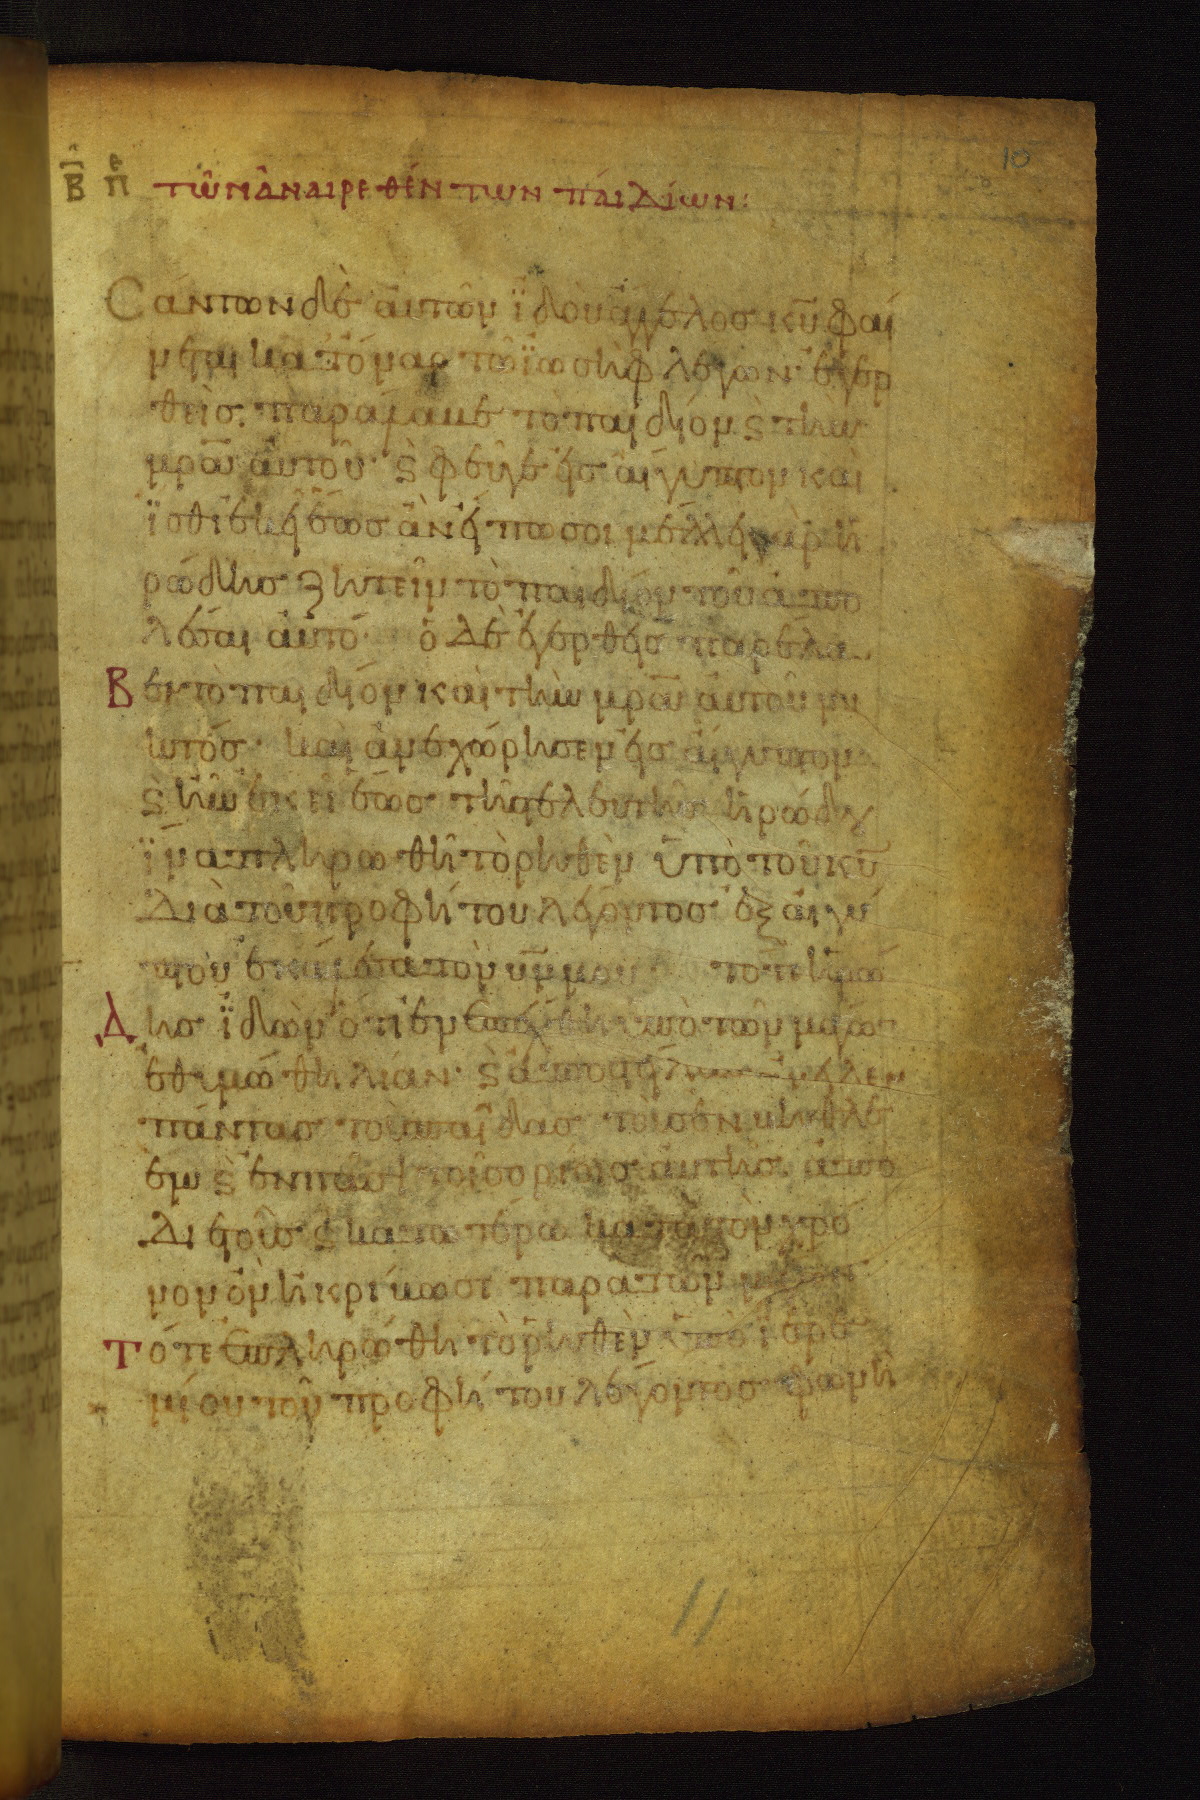 10
Β Περ τῶν ἀναιρεθέντων παιδίων:
Σάντων δὲ αὐτῶν ἰδοὺ ἄγγελος κυ̅ φαί
νεται κατόναρ τῶ ἰωσὴφ λέγων ἐγερ
θεὶς παράλαβε τὸ παιδίον ϛ τὴν
μρα̅ν αὐτοῦ ϛ φεῦγε εἰς αἴγυπτον καὶ
ἴσθι ἐκεῖ ἕως ἂν εἴπω σοι μέλλει γὰρ ἡ
ρώδης ζητεῖν τὸ παιδίον τοῦ ἀπο
λέσαι αὐτό ὁ δὲ ἐγερθεὶς παρέλα
Βεν τὸ παιδίον καὶ τὴν μρα̅ν αὐτοῦ νυ
κτός καὶ ἀνεχώρησεν εἰς αἴγυπτον
ϛ ἦν ἐκεῖ ἕως τῆς τελευτῆς ἡρώδου
ἵνα πληρωθῆ τὸ ῥηθὲν ὑπὸ τοῦ κυ̅
Διὰ τοῦ προφήτου λέγοντος ἐξ αἰγύ
πτου ἐκάλεσα τὸν υν̅ μου τότε ἡρώ
Δης ἰδὼν ὅτι ἐνεπαίχθη ὑπὸ τῶν μάγων
ἐθυμώθη λίαν ϛ ἀποστείλας ἀνεῖλεν
πάντας τοὺς παῖδας τοὺς ἐν βηθλε
ὲμ ϛ ἐν πᾶσι τοῖς ὁρίοις αὐτῆς ἀπὸ
Διετοῦς ϛ κατωτέρω κατὰ τὸν χρό
νον ὃν ἠκρίβωσε παρὰ τῶν μάγων
Τότε ἐπληρώθη τὸ ῥηθὲν ὑπὸ ἱερε
μίου τοῦ προφήτου λέγοντος φωνὴ
11